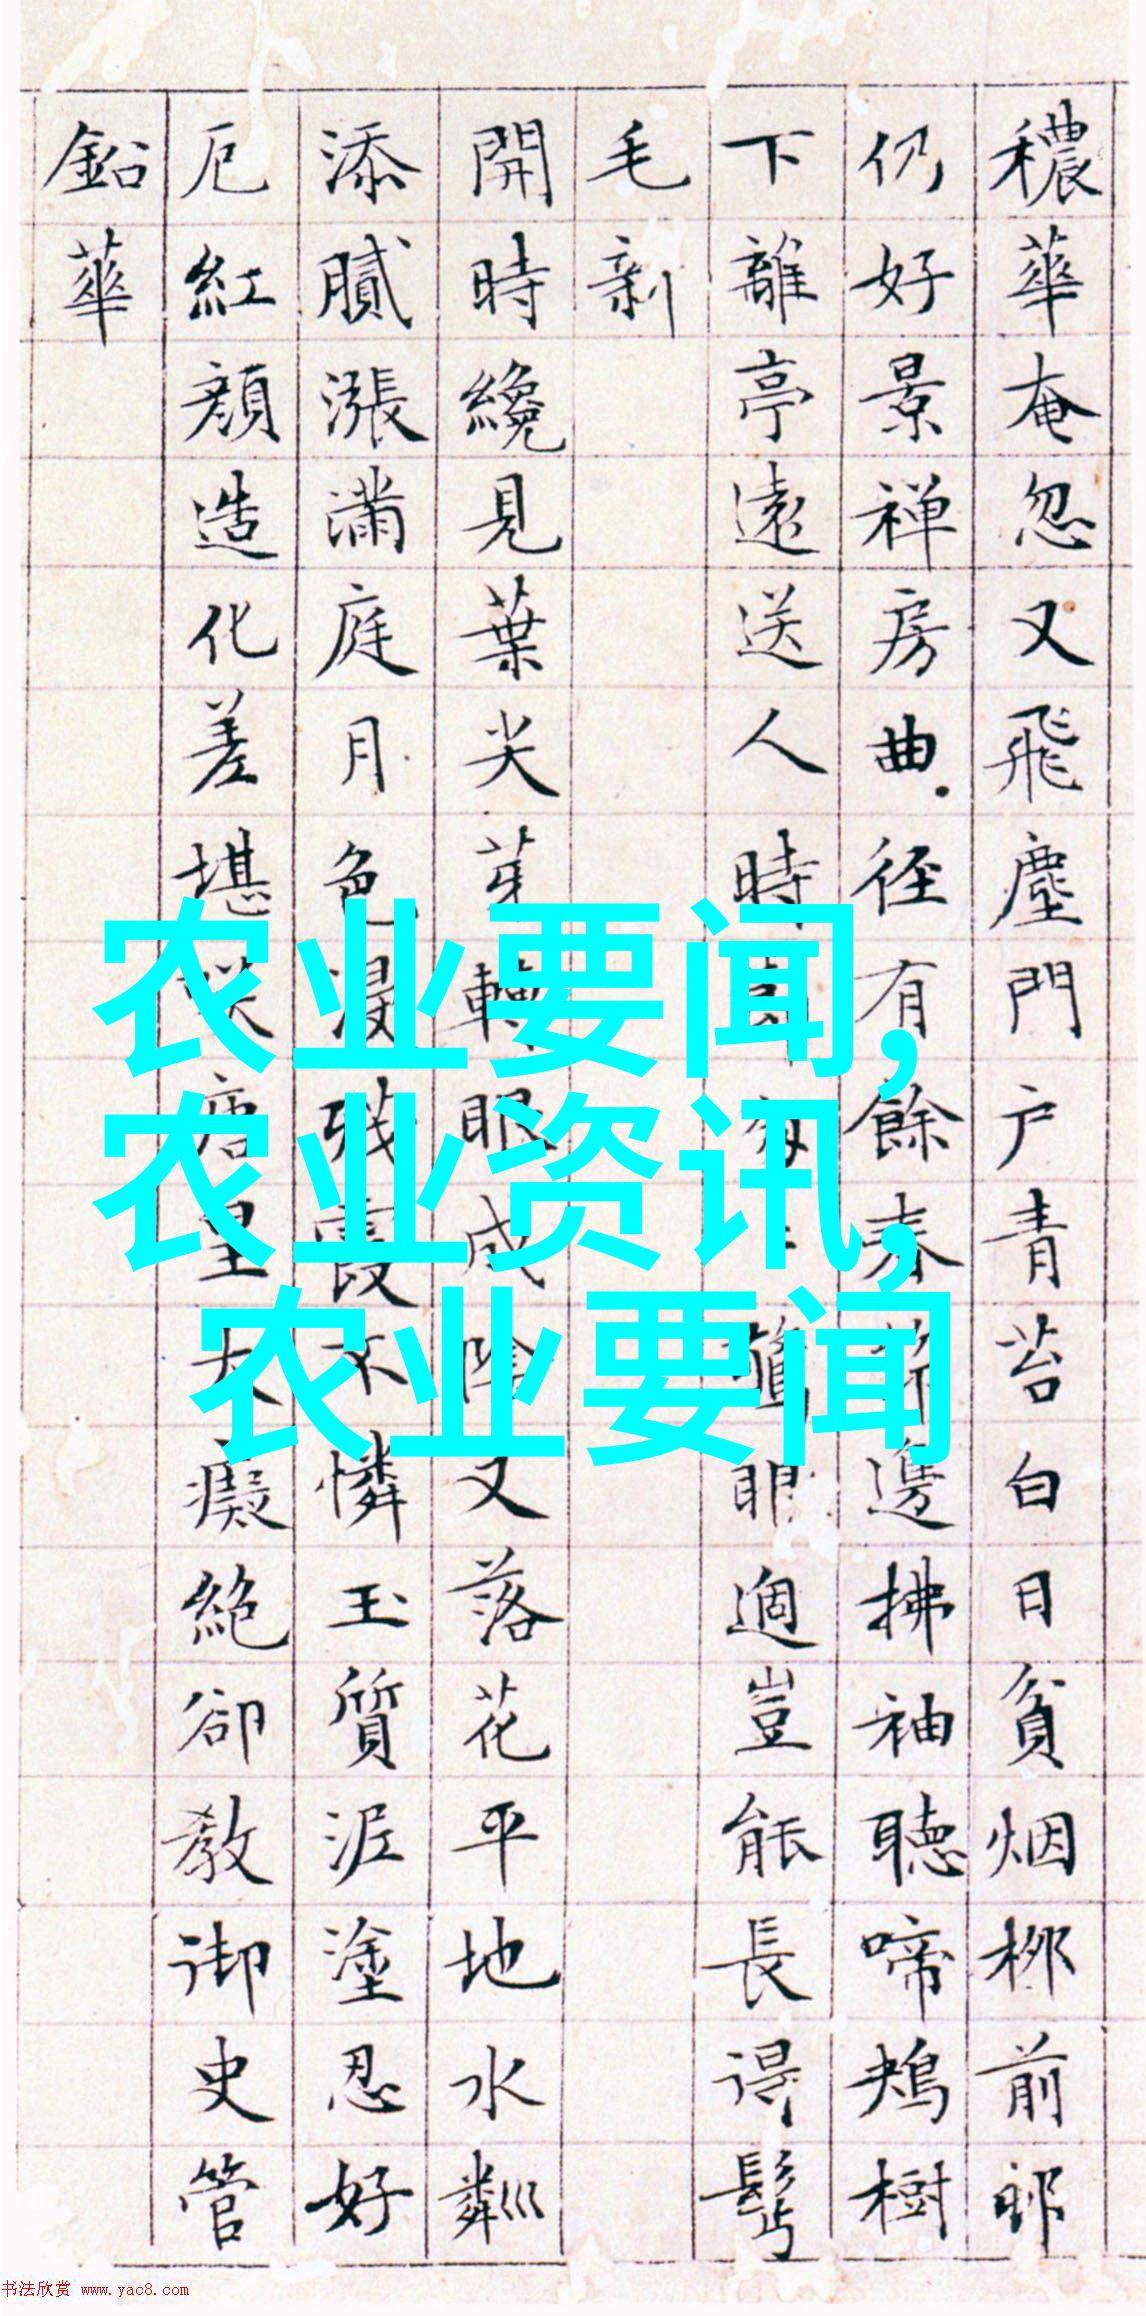 穠華奄忽又飛塵門户青苔白日貧烟柳前邨
仍好景禅房曲径有餘春邊拂袖聽啼鴂樹
下離亭遠送人時眼過豈能長得鬢
毛新
開時纔見葉尖芽轉眼成陰又落花平地水粼
添膩漲滿庭月色浸殘霞不憐玉質泥塗忍好
厄紅顔造化差堪咲唐皇太癡絶卻教御史管
鉛華
农业要闻,
农业资讯,
农业要闻
书法欣赏 www.yac8.com